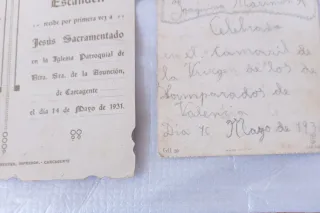 recibe por primera vez a
Jesús Sacramentado
en la Iglesia Parroquial de
Ntra. Sra. de la Asunción,
de Cartagente
el día 14 de Mayo de 1931.
Celebrada
en el Camaril de
la Virgen de los De
samparados de
Valencia
Día Mayo de 193